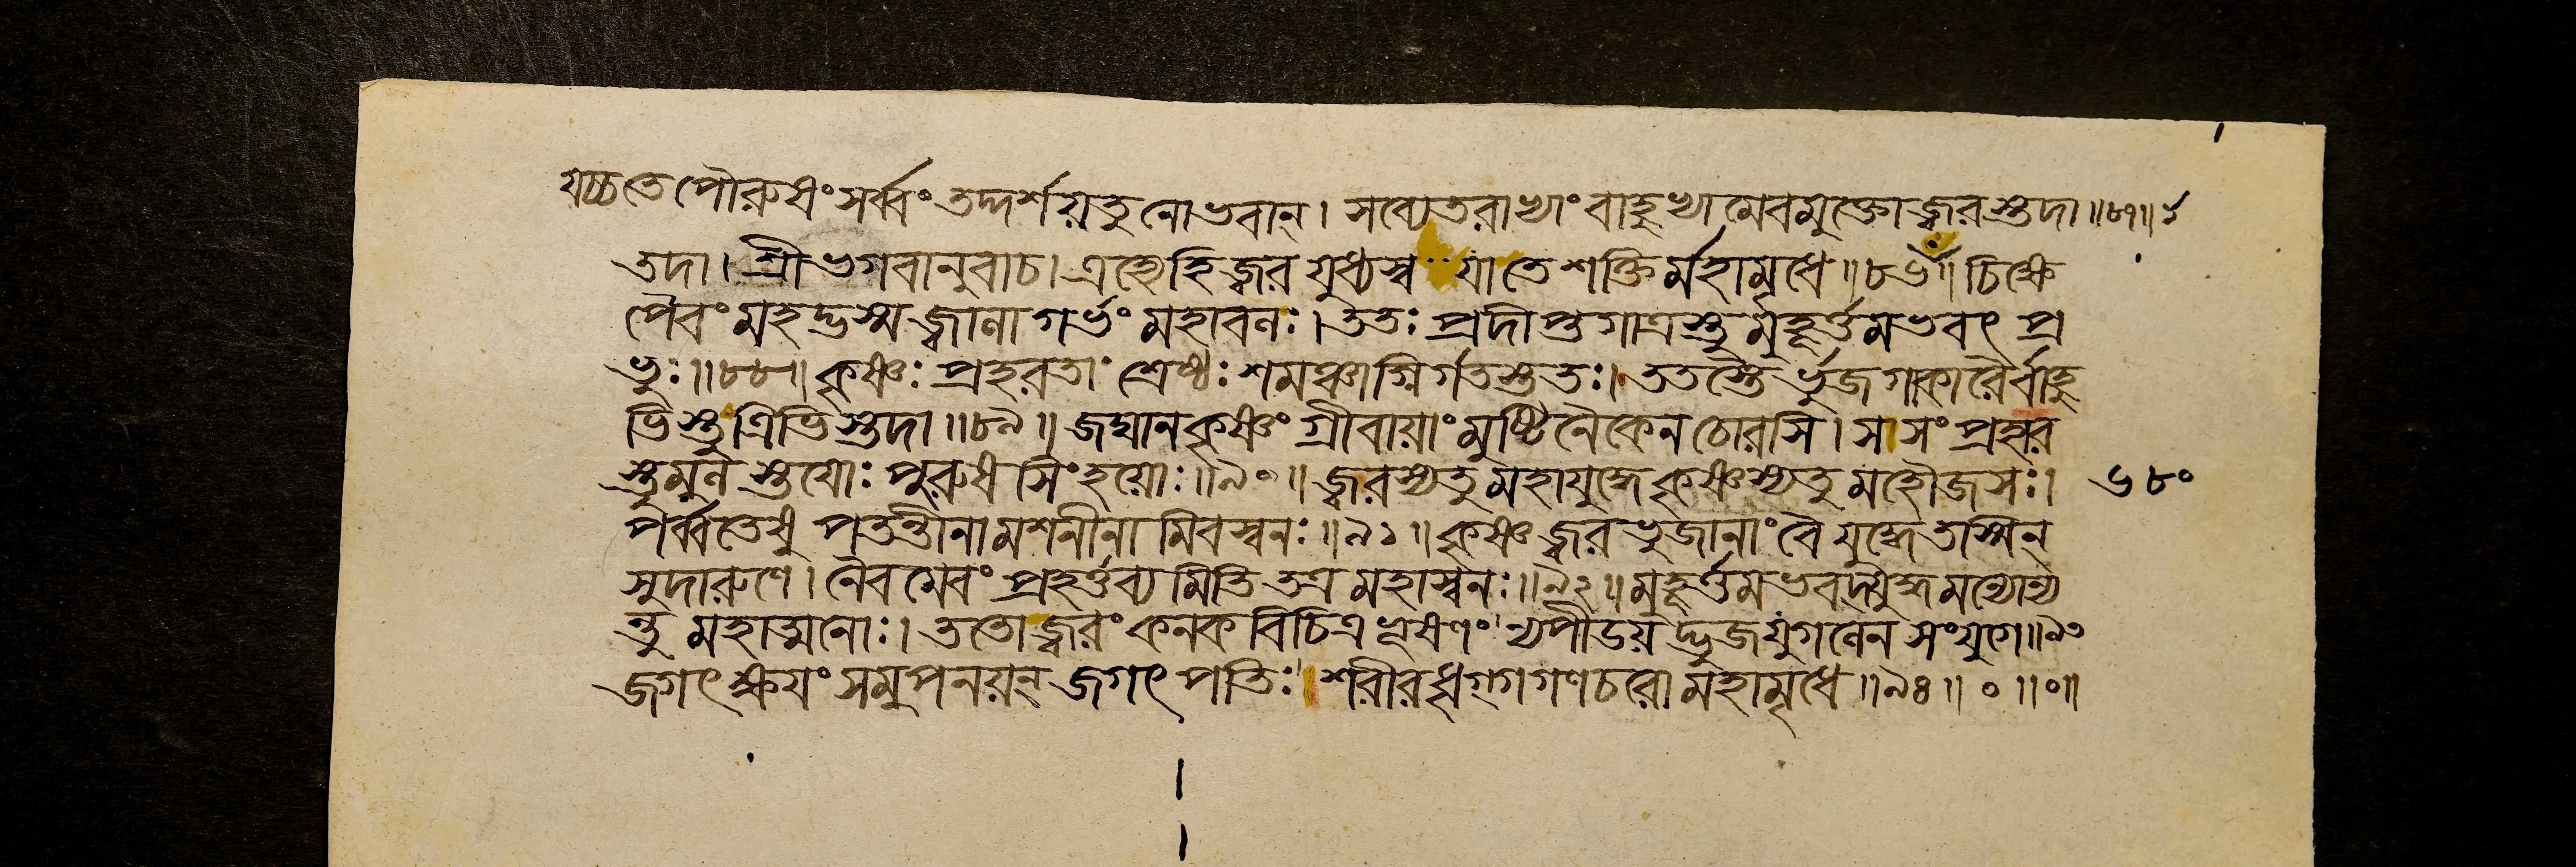 যচ্চতে পৌরুষং সর্ব্বং তদ্দর্শয়তু নো ভবান্। সব্যেতরাভ্যাং বাহুভ্যামেবমুক্তো জ্বরস্তদা॥৮৭॥
তদা। শ্রীভগবানুবাচ। এহ্যেহি জ্বর যুধ্যস্ব যা তে শক্তির্মহামৃধে॥৮৬॥ চিক্ষে
পৈবং মহদ্ভস্ম জ্বালাগর্ভং মহাবলঃ। ততঃ প্রদীপ্তগাত্রস্তু র্মুহূর্ত্তমভবৎ প্র
ভুঃ॥৮৮॥ কৃষ্ণঃ প্রহরতাং শ্রেষ্ঠঃ শমঞ্চাগ্নির্গতস্ততঃ। ততস্তৈ র্ভুজগাকারৈর্বাহু
ভিস্তু ত্রিভিস্তদা॥৮৯॥ জঘান কৃষ্ণং গ্রীবায়াং মুষ্টিনৈকেন চোরসি। স সংপ্রহার
স্তুমুল স্তয়োঃ পুরুষসিংহয়োঃ॥৯০॥ জ্বরস্য তু মহাযুদ্ধে কৃষ্ণস্য তু মহৌজসঃ। ৬৮০
পর্ব্বতেষু পতন্তীনামশনীনামিবস্বনঃ॥৯১॥ কৃষ্ণজ্বরভুজানাং বৈ যুদ্ধে তস্মিন্
সুদারুণে। নৈবমেবং প্রহর্ত্তব্যমিতি তত্র মহাস্বনঃ॥৯২॥ মুহূর্ত্তমভবদ্যুদ্ধমন্যোন্য
ন্তু মহাত্মনোঃ। ততো জ্বরং কনকবিচিত্রভূষণং ন্যপীডয়দ্ভুজযুগলেন সংযুগে॥৯৩
জগৎক্ষয়ং সমুপনয়ন্ জগৎপতিঃ। শরীরধৃগ্গগণচরো মহামৃধে॥৯৪॥০॥০॥